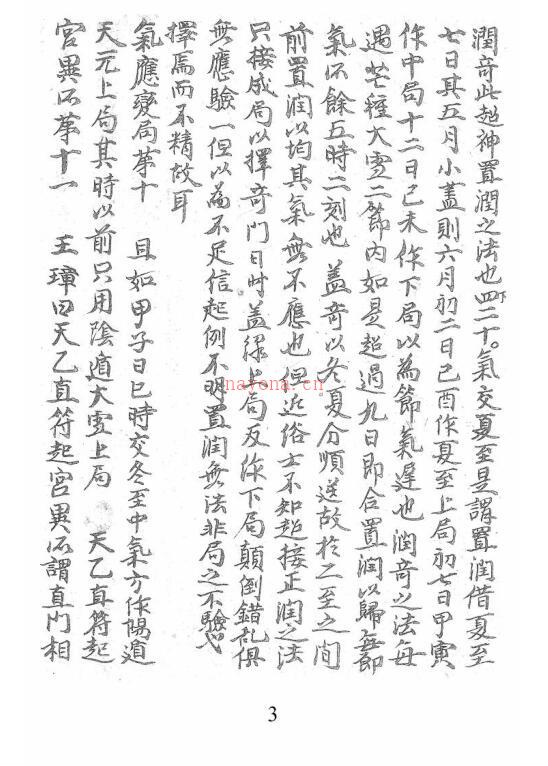 潤奇此超神置潤之法也四二十。氣交夏至是謂置潤借夏至
七日其五月小盖則六月初二日己酉作夏至上局初七日甲寅
作中局十二日己未作下局以為節氣遲也潤奇之法每
遇芒種大雪二節内如是超過九日即合置潤以歸每節
氣所餘五時二刻也盖奇以冬夏分順逆故於二至之间
前置潤以均其氣無不應也但近俗士不知超接正潤之法
只接成局以擇奇門日时盖縁上局反作下局顛倒錯乱俱
無應驗一但以為不足信起例不明置潤無法非局之不驗也
擇焉而不精故耳
氣應變局苐十 且如甲子日巳時交冬至中氣方作陽道
天元上局其時以前只用陰道大雪上局 天乙直符起
宫異所苐十一 王璋曰天乙直符起宫異所謂直門相
nayona.cn
3